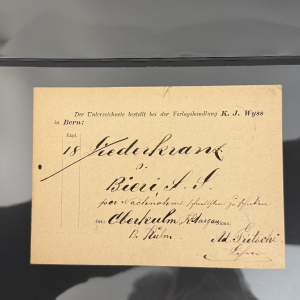 Der Unterzeichnete bestellt bei der Verlagshandlung K. J. Wyss
in Bern:
Expl.
18 Liederkranz
v.
Bieri S. S.
per Nachnahme
Oberkulm, Kt. Aargau
Ad. Fritschi
Lehrer